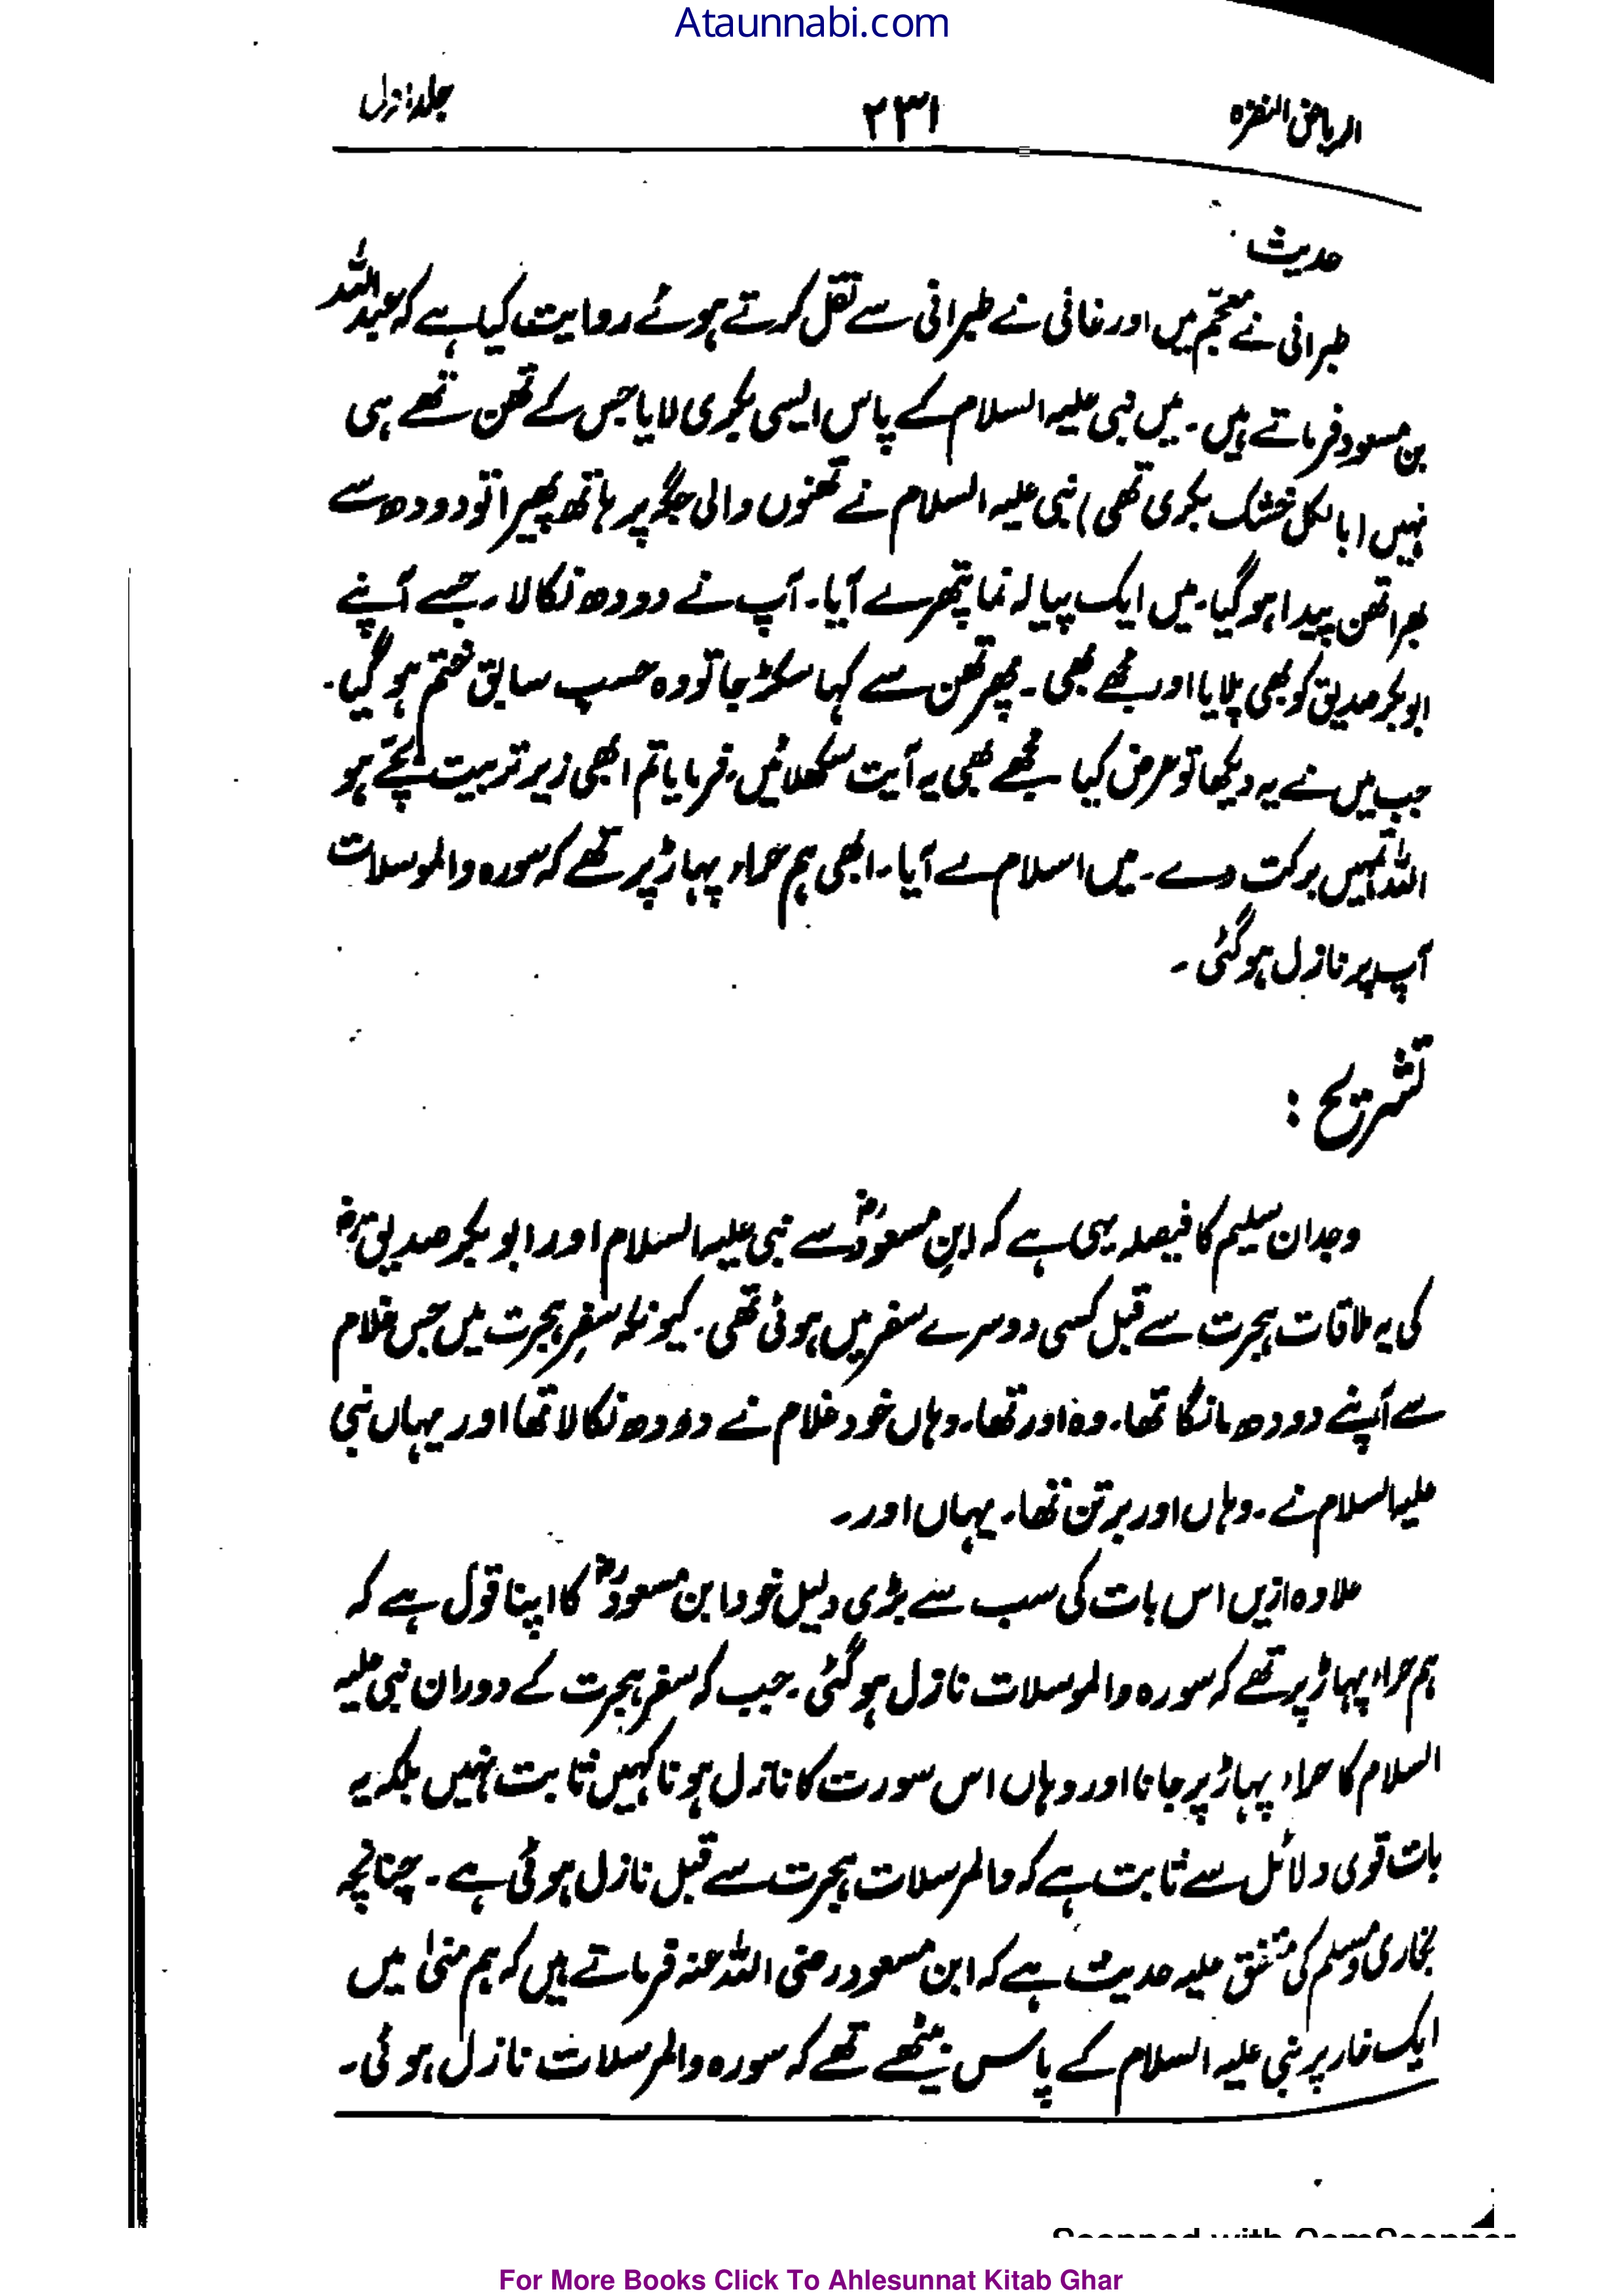 Ataunnabi.com
الریاض النضرہ ۲۳۱ جلد اول
حدیث
طبرانی نے معجم میں اور غانی نے طبرانی سے نقل کرتے ہوئے روایت کیا ہے کہ عبداللہ
بن مسعود فرماتے ہیں۔ میں نبی علیہ السلام کے پاس ایسی بکری لایا جس کے تھن تھے ہی
نہیں (بالکل خشک بکری تھی) نبی علیہ السلام نے تھنوں والی جگہ پر ہاتھ پھیرا تو دودھ سے
بھرا تھن پیدا ہو گیا۔ میں ایک پیالہ نما پتھر لے آیا۔ آپ نے دودھ نکالا۔ جسے آپنے
ابوبکر صدیق کو بھی پلایا اور مجھے بھی۔ پھر تھن سے کہا سکڑ جا تو وہ حسب سابق ختم ہو گیا۔
جب میں نے یہ دیکھا تو عرض کیا مجھے بھی یہ آیت سکھلائیں۔ فرمایا تم ابھی زیر تربیت بچے ہو
اللہ تمہیں برکت دے۔ میں اسلام لے آیا۔ ابھی ہم حراء پہاڑ پر تھے کہ سورہ والموسلات
آپ پر نازل ہو گئی۔
تشریح :
وجدان سلیم کا فیصلہ یہی ہے کہ ابنِ مسعودؓ سے نبی علیہ السلام اور ابوبکر صدیقؓ
کی یہ ملاقات ہجرت سے قبل کسی دوسرے سفر میں ہوئی تھی۔ کیونکہ سفرِ ہجرت میں جس غلام
سے آپنے دودھ مانگا تھا۔ وہ اور تھا۔ وہاں خود غلام نے دودھ نکالا تھا اور یہاں نبی
علیہ السلام نے۔ وہاں اور برتن تھا۔ یہاں اور۔
علاوہ ازیں اس بات کی سب سے بڑی دلیل خود ابن مسعودؓ کا اپنا قول ہے کہ
ہم حراء پہاڑ پر تھے کہ سورہ والموسلات نازل ہو گئی۔ جب کہ سفر ہجرت کے دوران نبی علیہ
السلام کا حراء پہاڑ پر جانا اور وہاں اس سورت کا نازل ہونا کہیں ثابت نہیں بلکہ یہ
بات قوی دلائل سے ثابت ہے کہ والمرسلات ہجرت سے قبل نازل ہوئی ہے۔ چنانچہ
بخاری و مسلم کی متفق علیہ حدیث ہے کہ ابن مسعود رضی اللہ عنہ فرماتے ہیں کہ ہم منیٰ میں
ایک غار پر نبی علیہ السلام کے پاس بیٹھے تھے کہ سورہ والمرسلات نازل ہوئی۔
Scanned with CamScanner
For More Books Click To Ahlesunnat Kitab Ghar